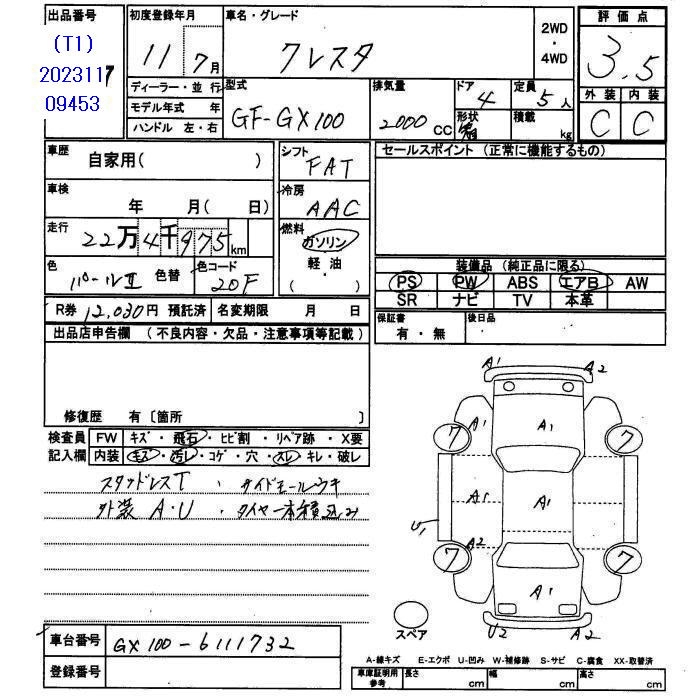 出品番号
(T1)
2023117
09453
初度登録年月
11 7月
車名・グレード
クレスタ
2WD
・
4WD
評価点
3.5
外装 内装
C C
ディーラー・並行
モデル年式 年
ハンドル 左・右
型式
GF-GX100
排気量
2000 CC
ドア 4
形状
定員 5人
積載 kg
車歴 自家用( )
シフト
FAT
セールスポイント (正常に機能するもの)
車検
年 月( 日)
冷房
AAC
走行
22万4千975km
燃料
ガソリン
軽・油
( ・ )
色 パールⅡ 色替
色コード 20F
装備品 (純正品に限る)
PS PW ABS エアB AW
SR ナビ TV 本革
R券 12,030円 預託済 名変期限 月 日
保証書
有・無
後日品
出品店申告欄 (不良内容・欠品・注意事項等記載)
修復歴 有〔箇所 〕
検査員
記入欄
FW キズ・飛石・ヒビ割・リペア跡・X要
内装 キズ・汚レ・コゲ・穴・スレ・キレ・破レ
スタッドレスT ・サイドモールウキ
外装A・U ・タイヤ一本積込み
A1 A2
A1 A1
7 7
A1 A1
U1
A2
7 7
A1
U2 A2
スペア
車台番号 GX100-6111732
登録番号
A-線キズ E-エクボ U-凹み W-補修跡 S-サビ C-腐食 XX-取替済
車庫証明用
参考
長さ cm
幅 cm
高さ cm